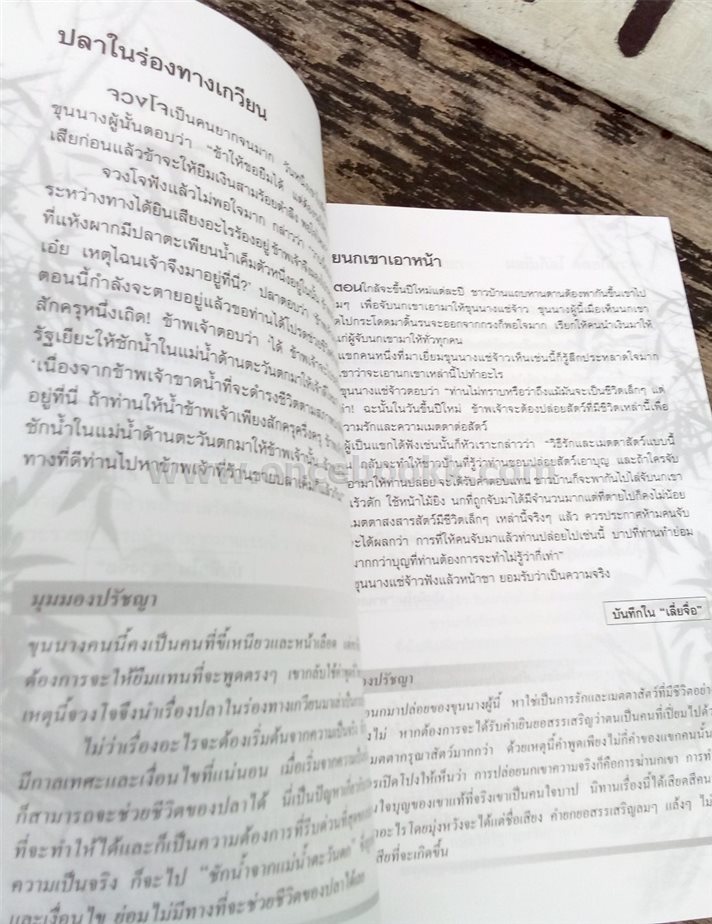 ปลาในร่องทางเกวียน
จวงโจเป็นคนยากจนมาก วันหนึ่ง
ขุนนางผู้นั้นตอบว่า "ข้าให้ขอยืมได้
เสียก่อนแล้วข้าจะให้ยืมเงินสามร้อยตำลึง
จวงโจฟังแล้วไม่พอใจมาก กล่าวว่า
ระหว่างทางได้ยินเสียงอะไรร้องอยู่ ข้าพเจ้า
ที่แห้งผากมีปลาตะเพียนน้ำเค็มตัวหนึ่งอยู่ใน
เอ๋ย เหตุไฉนเจ้าจึงมาอยู่ที่นี่?' ปลาตอบว่า
ตอนนี้กำลังจะตายอยู่แล้วขอท่านได้โปรด
สักครุหนึ่งเถิด! ข้าพเจ้าตอบว่า 'ได้
รัฐเยียะให้ชักน้ำในแม่น้ำด้านตะวันตกมาให้เจ้า
'เนื่องจากข้าพเจ้าขาดน้ำที่จะดำรงชีวิต
อยู่ที่นี่ ถ้าท่านให้น้ำข้าพเจ้าเพียงสักครุครึ่งครุ
ชักน้ำในแม่น้ำด้านตะวันตกมาให้ข้าพเจ้า
ทางที่ดีท่านไปหาข้าพเจ้าที่ร้านขายปลาเค็ม
มุมมองปรัชญา
ขุนนางคนนี้คงเป็นคนที่ขี้เหนียวและหน้าเลือด
ต้องการจะให้ยืมแทนที่จะพูดตรงๆ เขากลับใช้คำพูด
เหตุนี้จวงโจจึงนำเรื่องปลาในร่องทางเกวียนมา
ไม่ว่าเรื่องอะไรจะต้องเริ่มต้นจากความเป็น
มีกาลเทศะและเงื่อนไขที่แน่นอน เมื่อเริ่มจาก
ก็สามารถจะช่วยชีวิตของปลาได้ นี่เป็นปัญหา
ที่จะทำให้ได้และก็เป็นความต้องการที่รีบด่วนที่สุด
ความเป็นจริง ก็จะไป "ชักน้ำจากแม่น้ำตะวันตก"
และเงื่อนไข ย่อมไม่มีทางที่จะช่วยชีวิตของปลาได้เลย
ยนกเขาเอาหน้า
ตอนใกล้จะขึ้นปีใหม่แต่ละปี ชาวบ้านแถบหานตานต้องพากันขึ้นเขาไป
มๆ เพื่อจับนกเขาเอามาให้ขุนนางแซ่จ้าว ขุนนางผู้นี้เมื่อเห็นนกเขา
ดไปกระโดดมาดิ้นรนจะออกจากกรงก็พอใจมาก เรียกให้คนนำเงินมาให้
แก่ผู้จับนกเขามาให้ทั่วทุกคน
แขกคนหนึ่งที่มาเยี่ยมขุนนางแซ่จ้าวเห็นเช่นนี้ก็รู้สึกประหลาดใจมาก
เขาว่าจะเอานกเขาเหล่านี้ไปทำอะไร
ขุนนางแซ่จ้าวตอบว่า "ท่านไม่ทราบหรือว่าถึงแม้มันจะเป็นชีวิตเล็กๆ แต่
ค่า! ฉะนั้นในวันขึ้นปีใหม่ ข้าพเจ้าจะต้องปล่อยสัตว์ที่มีชีวิตเหล่านี้เพื่อ
ความรักและความเมตตาต่อสัตว์
ผู้เป็นแขกได้ฟังเช่นนั้นก็หัวเราะกล่าวว่า "วิธีรักและเมตตาสัตว์แบบนี้
กลับจะทำให้ชาวบ้านที่รู้ว่าท่านชอบปล่อยสัตว์เอาบุญ และถ้าใครจับ
เอามาให้ท่านปล่อย จะได้รับค่าตอบแทน ชาวบ้านก็จะพากันไปไล่จับนกเขา
เร้วดัก ใช้หน้าไม้ยิง นกที่ถูกจับมาได้มีจำนวนมากแต่ที่ตายไปก็คงไม่น้อย
เมตตาสงสารสัตว์มีชีวิตเล็กๆ เหล่านี้จริงๆ แล้ว ควรประกาศห้ามคนจับ
จะได้ผลกว่า การที่ให้คนจับมาแล้วท่านปล่อยไปเช่นนี้ บาปที่ท่านทำย่อม
มากกว่าบุญที่ท่านต้องการจะทำไม่รู้ว่ากี่เท่า"
ขุนนางแซ่จ้าวฟังแล้วหน้าชา ยอมรับว่าเป็นความจริง
บันทึกใน "เลี่ยจื่อ"
องปรัชญา
อนกมาปล่อยของขุนนางผู้นี้ หาใช่เป็นการรักและเมตตาสัตว์ที่มีชีวิตอย่า
งไม่ หากต้องการจะได้รับคำเยินยอสรรเสริญว่าตนเป็นคนที่เปี่ยมไปด้ว
มตตากรุณาสัตว์มากกว่า ด้วยเหตุนี้คำพูดเพียงไม่กี่คำของแขกคนนั้น
รเปิดโปงให้เห็นว่า การปล่อยนกเขาความจริงก็คือการฆ่านกเขา การทำ
งใจบุญของเขาแท้ที่จริงเขาเป็นคนใจบาป นิทานเรื่องนี้ได้เสียดสีคน
าอะไรโดยมุ่งหวังจะได้แต่ชื่อเสียง คำยกยอสรรเสริญลมๆ แล้งๆ ไม่
สียที่จะเกิดขึ้น